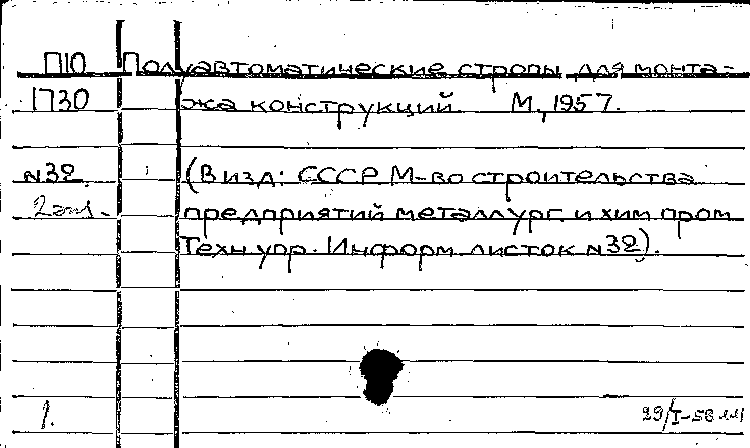 П10 Полуавтоматические стропы для монта-
1730 жа конструкций. М., 1957.
N32. (В изд: СССР. М-во строительства
2 экз. предприятий металлург. и хим пром
Техн упр. Информ. листок N32).
1. 29/I-58